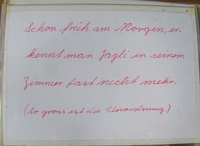 Schon früh am Morgen, er-
kennt man Jagli in seinem
Zimmer fast nicht mehr.
(So gross ist die Unordnung) :